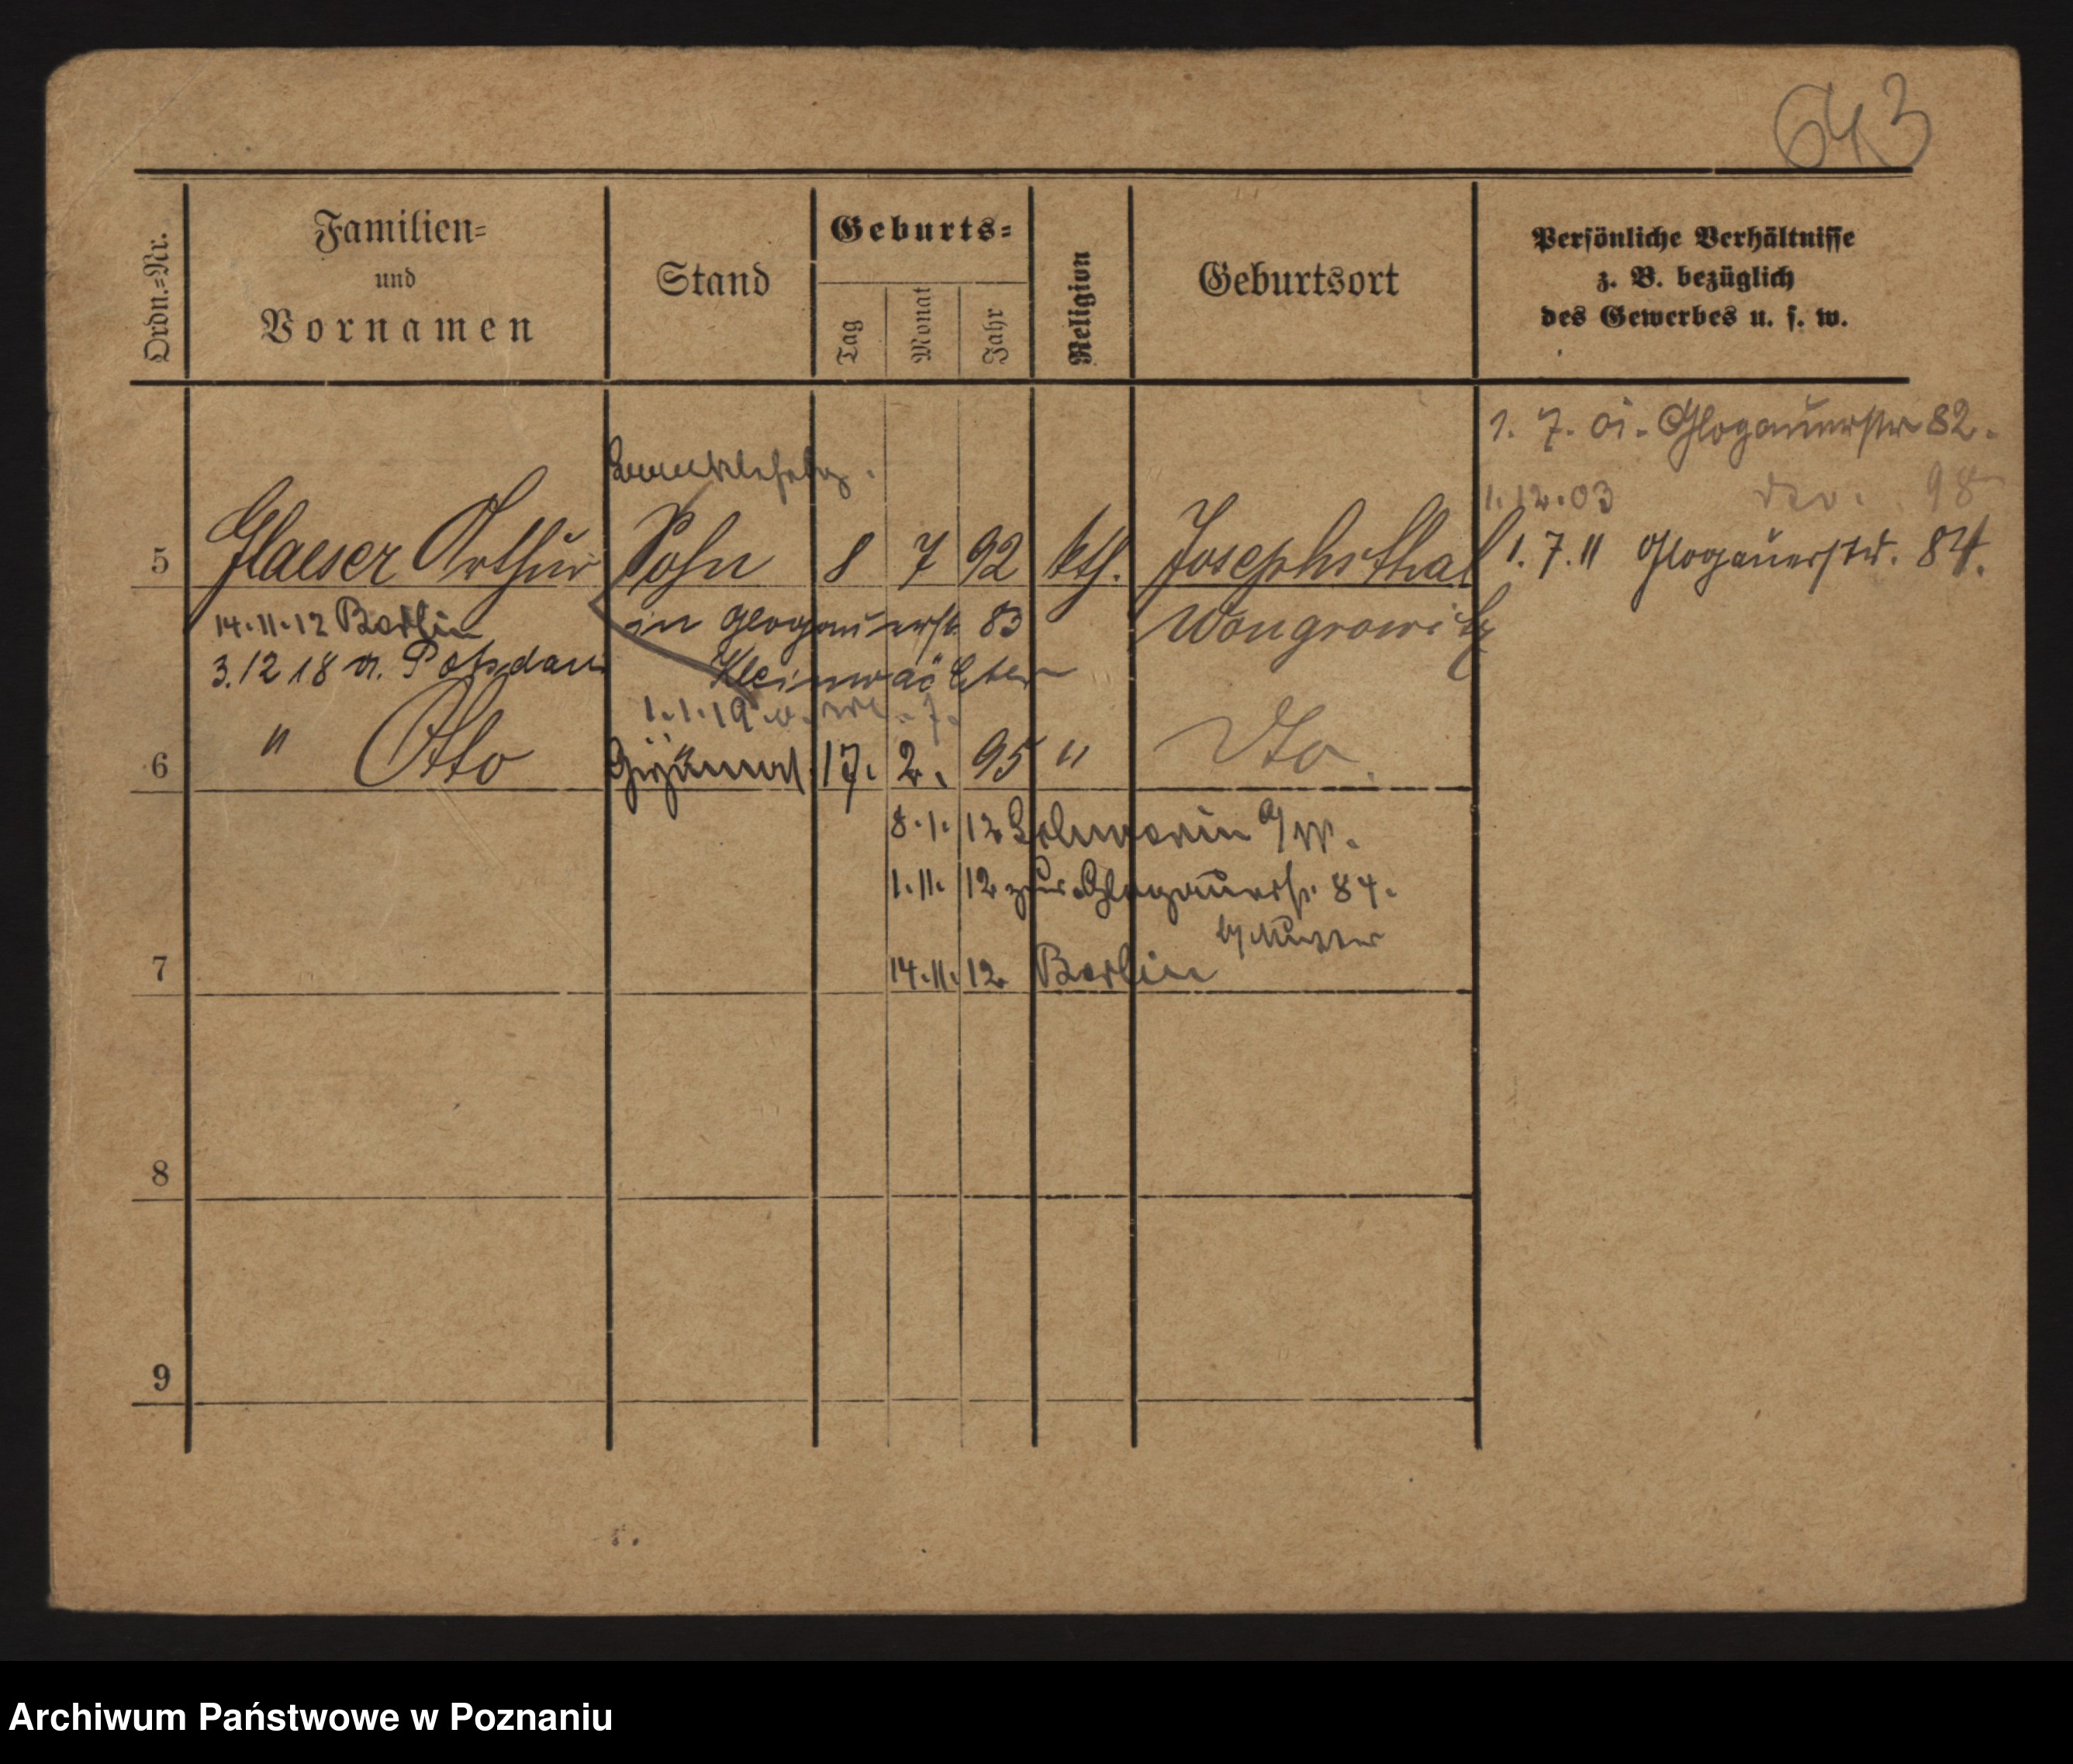 643
Ordn.=Nr.
Familien=
und
Vornamen
Stand
Geburts=
Tag
Monat
Jahr
Religion
Geburtsort
Persönliche Verhältnisse
z. B. bezüglich
des Gewerbes u. s. w.
1. 7. 01. Glogauerstr 82.
1.12.03 98
1.7.11 Glogauerstr. 84.
5 Glaeser Arthur Sohn 8 7 92 kth. Josephsthal
14.11.12 Berlin in Glogauerstr. 83 Wongrowitz
3.12 18 v. Potsdam
1.1.19
6 " Otto 17. 2. 95 " Dto
8.1.12
1.11.12 zur Glogauerstr. 84.
b/ Mutter
7 14.11.12 Berlin
8
9
Archiwum Państwowe w Poznaniu